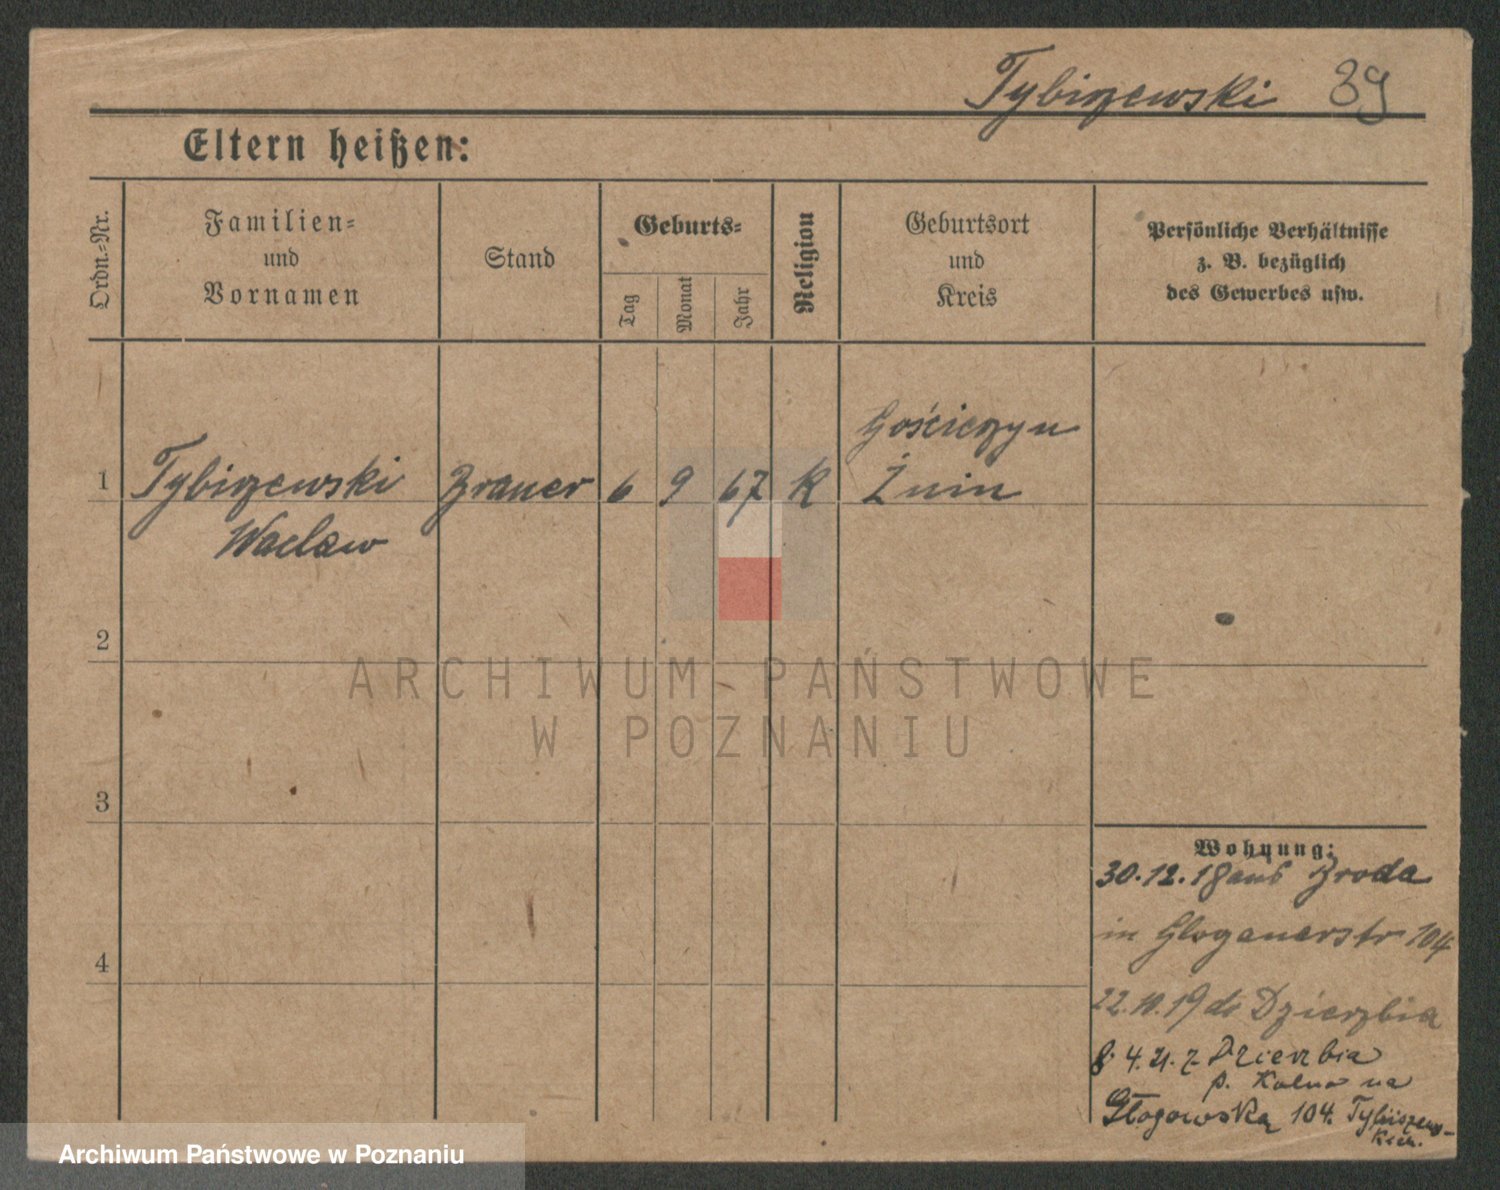 Tybiszewski 39
Eltern heißen:
Ordn.-Nr.
Familien-
und
Vornamen
Stand
Geburts-
Tag
Monat
Jahr
Religion
Geburtsort
und
Kreis
Persönliche Verhältnisse
z. B. bezüglich
des Gewerbes usw.
1 Tybiszewski Brauer 6 9 67 K Gościeszyn
Żnin
Waclaw
2
3
4
Wohnung:
30.12.18 aus Sroda
in Glogauerstr 104
22.10.19 do Dzierzbia
8. 4. 21. z Dzierzbia
p. Kolno na
Głogowską 104.
ARCHIWUM PAŃSTWOWE
W POZNANIU
Archiwum Państwowe w Poznaniu